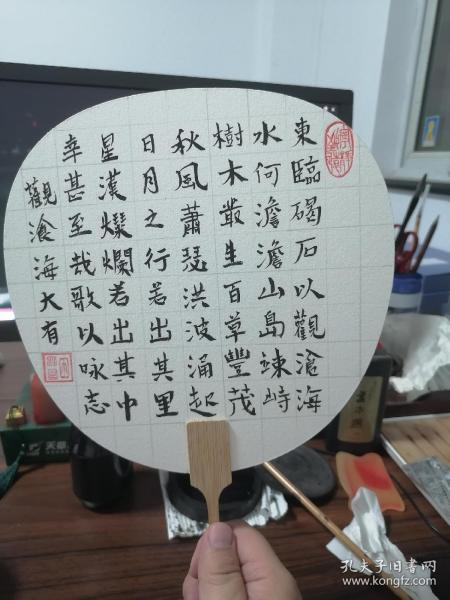 東臨碣石以觀滄海
水何澹澹山島竦峙
樹木叢生百草豐茂
秋風蕭瑟洪波涌起
日月之行若出其里
星漢燦爛若出其中
幸甚至哉歌以咏志
觀滄海大有
孔夫子旧书网
www.kongfz.com